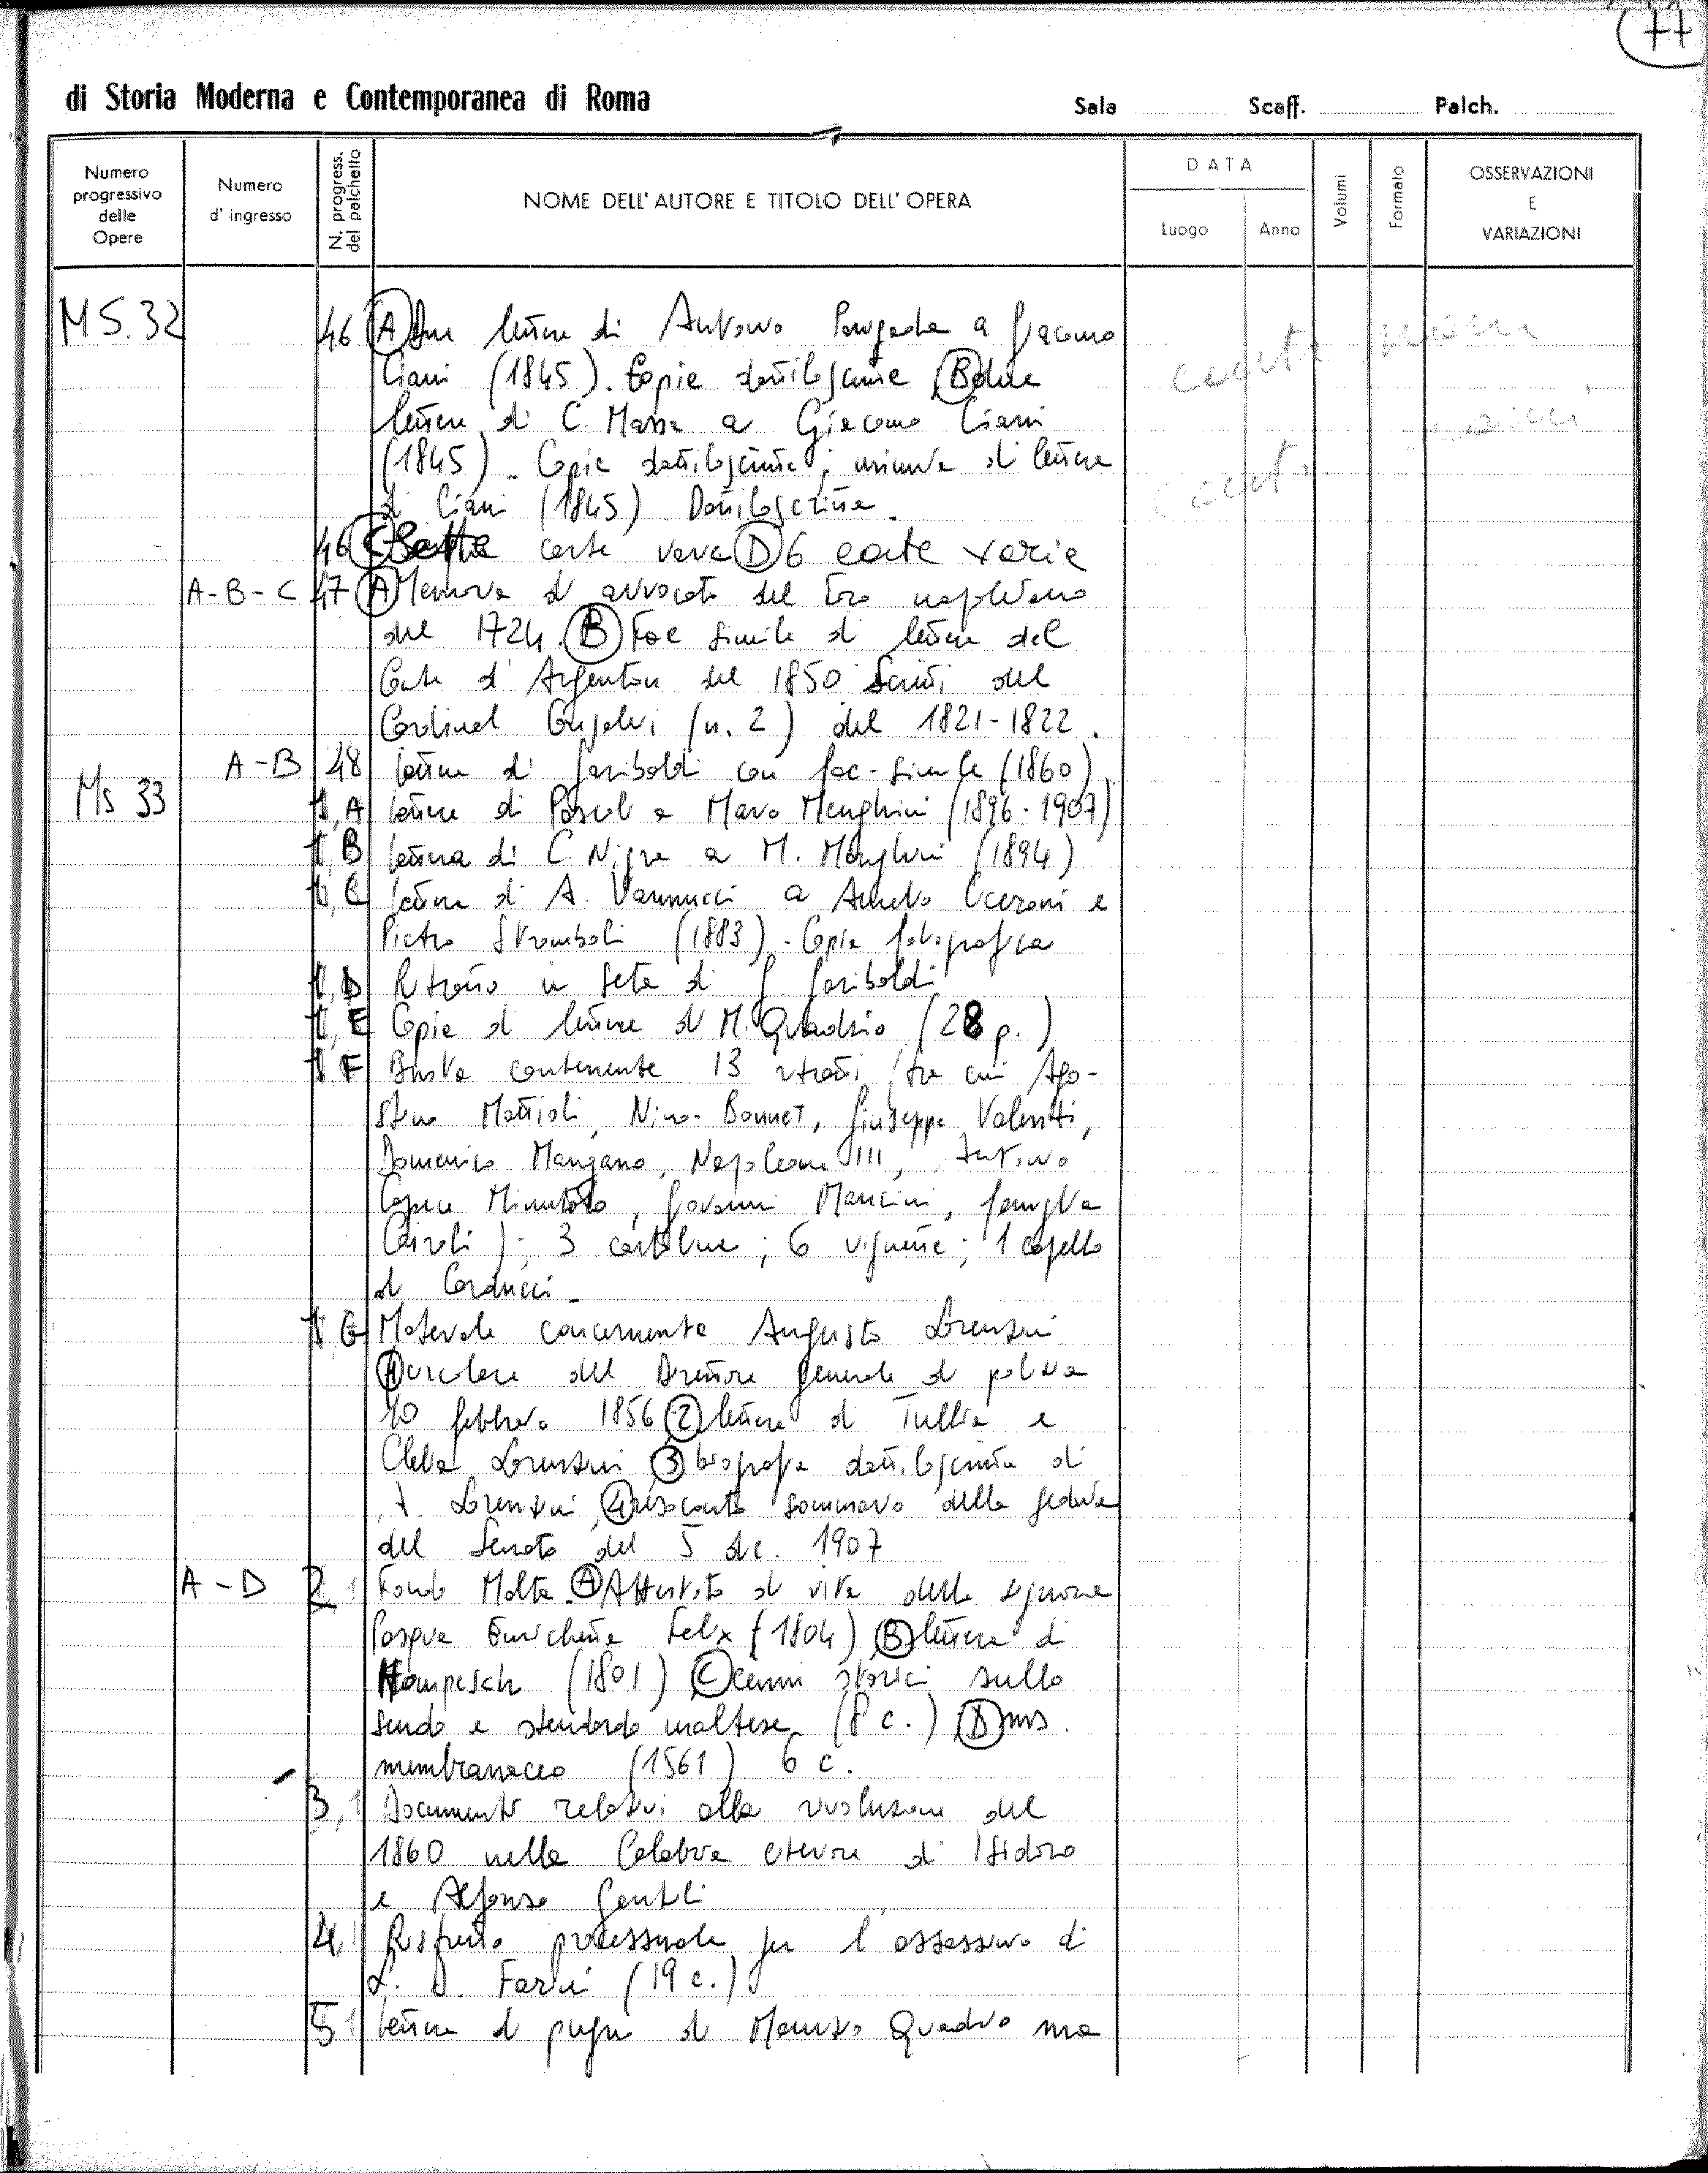 77
di Storia Moderna e Contemporanea di Roma Sala Scaff. Palch.
Numero progressivo delle Opere
Numero d'ingresso
N. progress. del palchetto
NOME DELL'AUTORE E TITOLO DELL'OPERA
DATA
Luogo Anno
Volumi
Formato
OSSERVAZIONI E VARIAZIONI
MS.32 46 A lettere di Antonio a Giacomo
Ciani (1845). Copie dattiloscritte B due
lettere di C. Massa a Giacomo Ciani
(1845). Copie dattiloscritte; minuta di lettera
di Ciani (1845) Dattiloscritta.
46 C carte varie D 6 carte varie
A-B-C 47 A Memoria di avvocato del foro napoletano
del 1724. B Fac simile di lettera del
Conte d'Argenton del 1850 Scritti del
Cardinal Consalvi (n. 2) del 1821-1822.
A-B 48 lettera di Garibaldi con fac-simile (1860)
Ms 33 1, A lettere di Pascoli a Mario Menghini (1896-1907)
1, B lettera di C. Nigra a M. Menghini (1894)
1, C lettere di A. Vannucci a Amelio e
Pietro Stromboli (1883). Copia fotografica
1, D Ritratto in seta di G Garibaldi
1, E Copie di lettere di M. Quadrio (28 p.)
1 F Busta contenente 13 ritratti (tra cui Ago-
stino Mattioli, Nino Bonnet, Giuseppe Valenti,
Domenico Mangano, Napoleone III, Antonio
Capece Minutolo, Giovanni Mancini, famiglia
Cairoli); 3 cartoline; 6 vignette; 1 capello
di Carducci.
1 G Materiale concernente Augusto Lorenzini
1 circolare del Direttore generale di polizia
10 febbraio 1856 2 lettere di Tullia e
Clelia Lorenzini 3 biografia dattiloscritta di
A. Lorenzini 4 resoconto sommario della seduta
del Senato del 5 dic. 1907
A-D 2 Fondo Malta. A Attestato di vita della signora
Pasqua Enrichetta Felix (1804) B lettera di
Hompesch (1801) C cenni storici sullo
scudo e stendardo maltese (8 c.) D ms.
membranaceo (1561) 6 c.
3, Documenti relativi alla rivoluzione del
1860 nella Calabria citeriore di Isidoro
e Alfonso Gentili
4, Ristretto processuale per l'assassinio di
L. D. Farini (19 c.)
5 lettere di pugno di Maurizio Quadrio ma